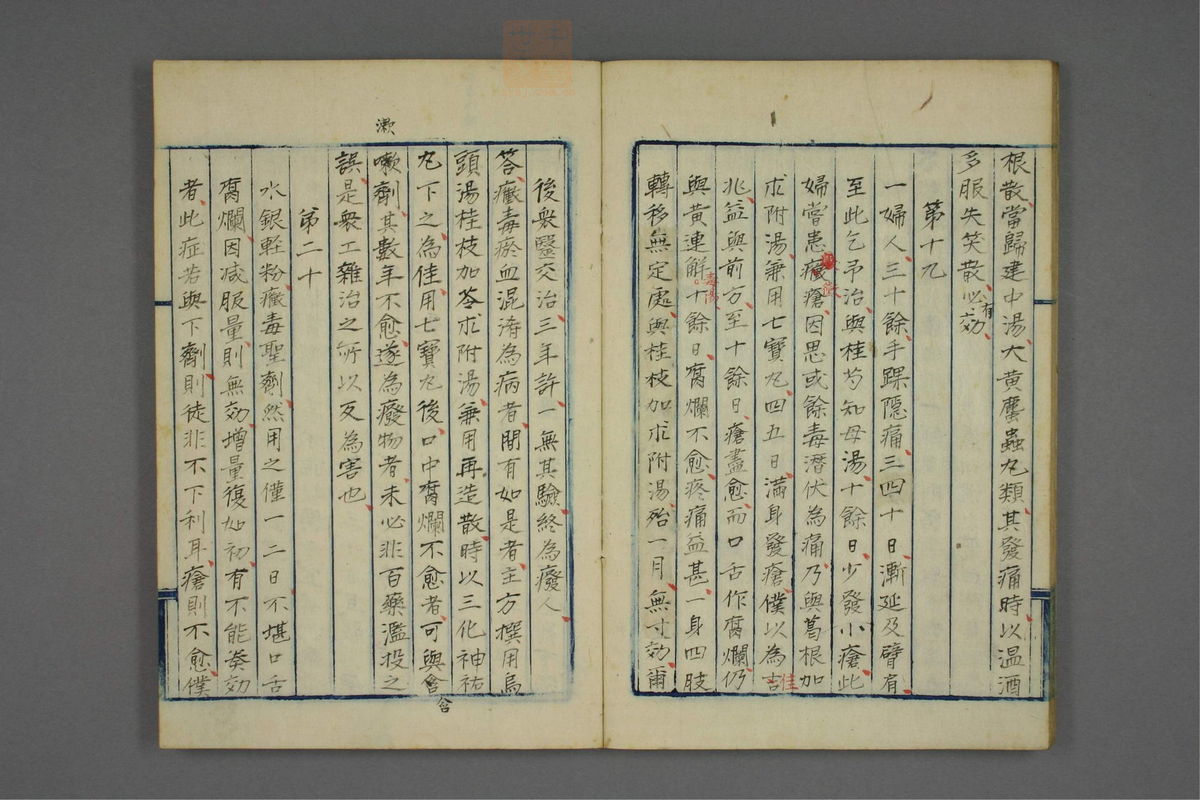 根散當歸建中湯大黄䗪蟲丸類其發痛時以温酒
多服失笑散必有効
第十九
一婦人三十餘手踝隠痛三四十日漸延及臂有
至此乞吊治與桂芍知母湯十餘日少發小瘡此
婦嘗患癥瘡因思或餘毒潜伏為痛乃與葛根加
朮附湯兼用七寶丸四五日満身發瘡僕以為吉
佳
兆益與前方至十餘日瘡盡愈而口舌作腐爛仍
與黄連解毒湯十餘日腐爛不愈疼痛益甚一身四肢
轉移無定處與桂枝加朮附湯殆一月無寸効爾
後衆醫交治三年許一無其驗終為癈人
答癥毒瘀血混淆為病者間有如是者主方撰用烏
頭湯桂枝加苓朮附湯兼用再造散時以三化神祐
丸下之為佳用七寶丸後口中腐爛不愈者可與含
含
漱
嗽劑其數年不愈遂為癈物者未必非百藥濫投之
誤是衆工雜治之所以反為害也
第二十
水銀軽粉癥毒聖劑然用之僅一二日不堪口舌
腐爛因减服量則無効増量復如初有不能奏効
者此症若與下劑則徒非不下利耳瘡則不愈僕